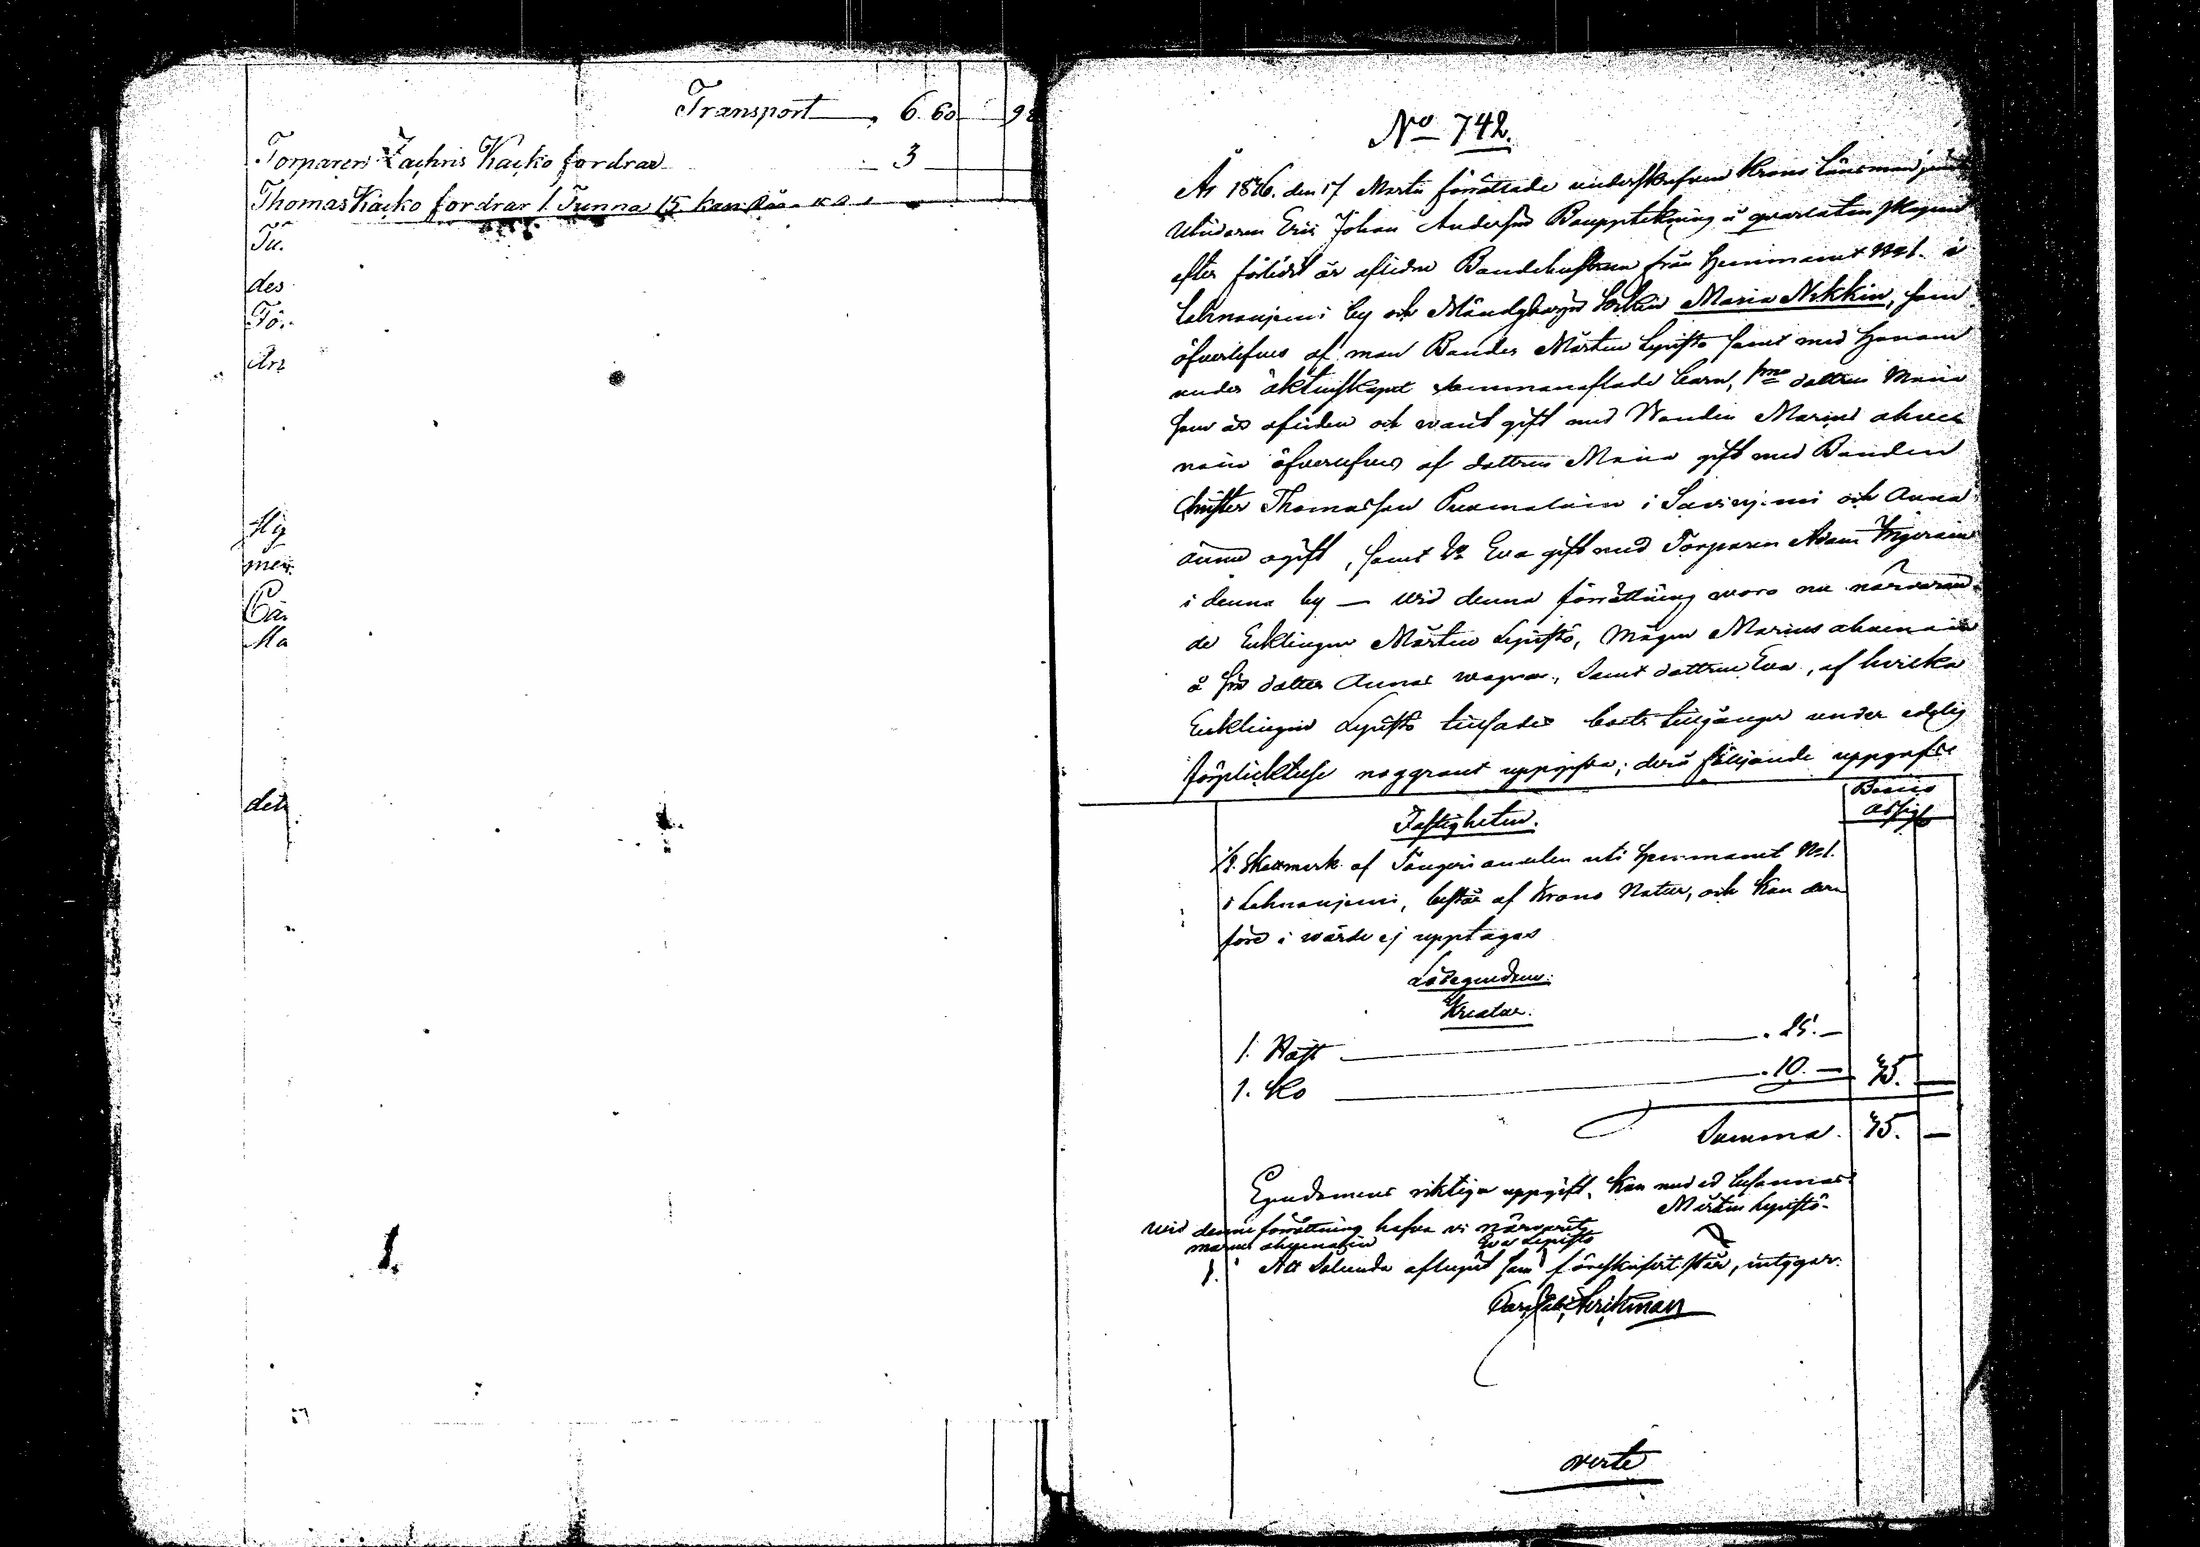 Transport 6. 60 98
Torparen Zachris Kaiko fordrar 3
Thomas Kaiko fordrar 1. Tunna 15 kan
Tu.
des
För
An
Hy
men
Ca
Ma
det
1.
No 742.
År 1876. den 17 Martii förrättade underskrefven Krono Länsman
Eric Johan Anderson Bouppteckning å qvarlåtenskapen
efter förlidet år aflidne Bondehustrun från Hemmanet No 1. i
Lahnanjemi by och Maria Nikkin, som
öfverlefves af man Bonden Mårten Lepistö samt med honom
under äktenskapet sammanaflade barn, 1mo dottren Maria
som är afliden och varit gift med Bonden Marius ahvee
nain öfverlefves af dottren Maria gift med Bonden
Christer Thomasson i och Anna
ännu ogift, samt 2o Eva gift med Torparen Adam
i denna by — Wid denna förrättning woro nu närvaran
de Enklingen Mårten Lepistö, Mågen Marius ahvenain
å sin dotter Annas wägnar, samt dottren Eva, af hvilka
Enklingen Lepistö tillsades boets tillgångar under edelig
förplicktelse noggrant uppgifva; derå följande uppgafs:
Bevis
Fastigheten.
1/8. Skattmark af hemmanet No 1.
i Lahnanjemi, består af Krono Natur, och kan der
före i wärde ej upptagas
Lösegendom:
Kreatur.
1. Häst . 25. —
1. Ko . 10. — 35. —
Summa. 35. —
Egendomens riktiga uppgift, kan med ed besannas
Mårten Lepistö
Wid denna förrättning hafva vi närvarit
Marius ahvenain Eva Lepistö
Att Sålunda aflupit som föreskrifvit står, intygar.
verte